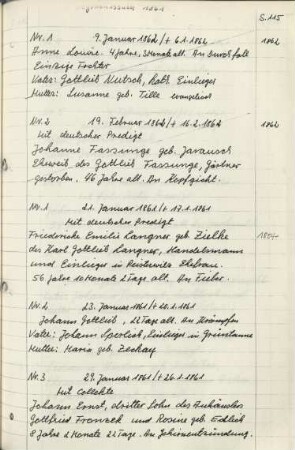 S. 115
Nr. 1 9. Januar 1862/+ 6.1.1862 1862
Anne Louise. 4 Jahre, 3 Monate alt. An Durchfall
Einzige Tochter
Vater: Gottlieb Nutsch, kath. Einlieger
Mutter: Susanne geb. Tille evangelisch
Nr. 2 19. Februar 1862/+ 16.2.1862 1862
Mit deutscher Predigt
Johanne Fassunge geb. Jarausch
Eheweib des Gottlieb Fassunge, Gärtner
gestorben. 46 Jahre alt. An Kopfgicht.
Nr. 1 21. Januar 1861/+ 17.1.1861
Mit deutscher Predigt
Friederieke Emilie Langner geb. Zielke
des Karl Gottlieb Langner, Handelsmann
und Einlieger in Ehefrau.
56 Jahre 10 Monate 2 Tage alt. An Fieber.
Nr. 2 23. Januar 1861/+ 20.1.1861
Johann Gottlieb, 22 Tage alt. An Krämpfen
Vater: Johann Sperlich, Einlieger in Grüntanne
Mutter: Maria geb. Zechay
Nr. 3 29. Januar 1861/+ 26.1.1861
Mit Collekte
Johann Ernst, dritter Sohn des
Gottfried Fronzek und Rosine geb.
8 Jahre 2 Monate 22 Tage. An Gehirnentzündung.